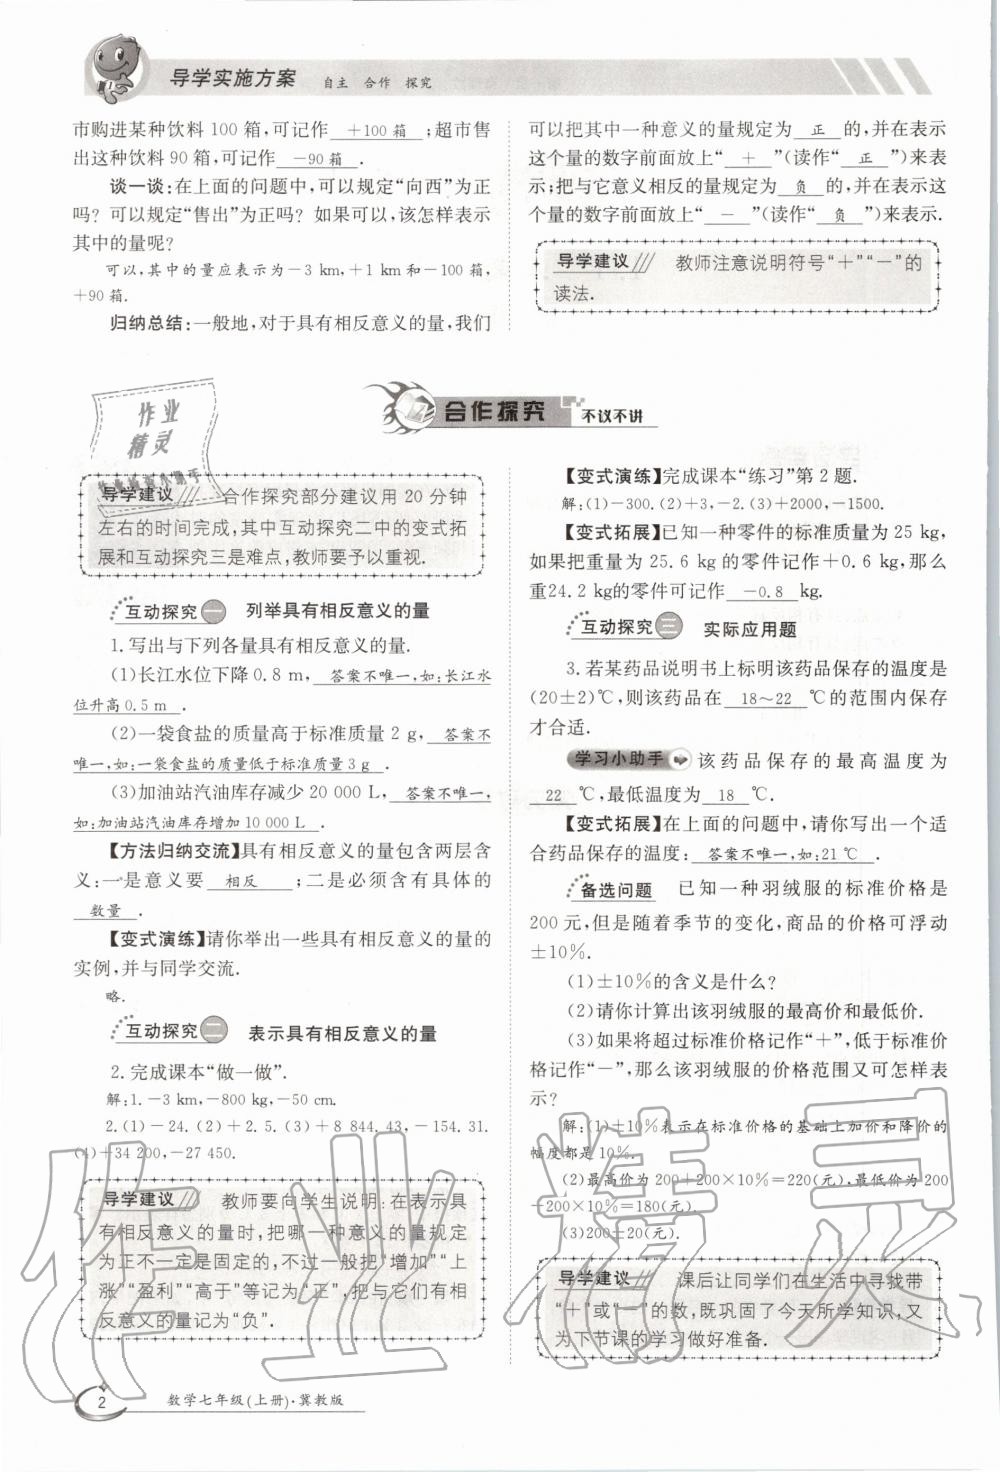 导学实施方案 自主 合作 探究
市购进某种饮料 100 箱,可记作 +100 箱 ;超市售
出这种饮料 90 箱,可记作 -90 箱 .
谈一谈:在上面的问题中,可以规定“向西”为正
吗? 可以规定“售出”为正吗? 如果可以,该怎样表示
其中的量呢?
可以,其中的量应表示为-3 km,+1 km和-100 箱,
+90 箱.
归纳总结:一般地,对于具有相反意义的量,我们
可以把其中一种意义的量规定为 正 的,并在表示
这个量的数字前面放上“ + ”(读作“ 正 ”)来表
示;把与它意义相反的量规定为 负 的,并在表示这
个量的数字前面放上“ - ”(读作“ 负 ”)来表示.
导学建议 教师注意说明符号“+”“-”的
读法.
合作探究 不议不讲
作业
精灵
导学建议 合作探究部分建议用 20 分钟
左右的时间完成,其中互动探究二中的变式拓
展和互动探究三是难点,教师要予以重视.
互动探究一 列举具有相反意义的量
1.写出与下列各量具有相反意义的量.
(1)长江水位下降 0.8 m, 答案不唯一,如:长江水
位升高 0.5 m .
(2)一袋食盐的质量高于标准质量 2 g, 答案不
唯一,如:一袋食盐的质量低于标准质量 3 g .
(3)加油站汽油库存减少 20 000 L, 答案不唯一,
如:加油站汽油库存增加 10 000 L .
【方法归纳交流】具有相反意义的量包含两层含
义:一是意义要 相反 ;二是必须含有具体的
数量 .
【变式演练】请你举出一些具有相反意义的量的
实例,并与同学交流.
略.
互动探究二 表示具有相反意义的量
2.完成课本“做一做”.
解:1.-3 km,-800 kg,-50 cm.
2.(1)-24.(2)+2.5.(3)+8 844.43,-154.31.
(4)+34 200,-27 450.
导学建议 教师要向学生说明:在表示具
有相反意义的量时,把哪一种意义的量规定
为正不一定是固定的,不过一般把“增加”“上
涨”“盈利”“高于”等记为“正”,把与它们有相
反意义的量记为“负”.
【变式演练】完成课本“练习”第 2 题.
解:(1)-300.(2)+3,-2.(3)+2000,-1500.
【变式拓展】已知一种零件的标准质量为 25 kg,
如果把重量为 25.6 kg 的零件记作+0.6 kg,那么
重24.2 kg的零件可记作 -0.8 kg.
互动探究三 实际应用题
3.若某药品说明书上标明该药品保存的温度是
(20±2)℃,则该药品在 18~22 ℃的范围内保存
才合适.
学习小助手 该药品保存的最高温度为
22 ℃,最低温度为 18 ℃.
【变式拓展】在上面的问题中,请你写出一个适
合药品保存的温度: 答案不唯一,如:21 ℃ .
备选问题 已知一种羽绒服的标准价格是
200 元,但是随着季节的变化,商品的价格可浮动
±10%.
(1)±10%的含义是什么?
(2)请你计算出该羽绒服的最高价和最低价.
(3)如果将超过标准价格记作“+”,低于标准价
格记作“-”,那么该羽绒服的价格范围又可怎样表
示?
解:(1)±10%表示在标准价格的基础上加价和降价的
幅度都是 10%.
(2)最高价为 200+200×10%=220(元),最低价为 200
-200×10%=180(元).
(3)200±20(元).
导学建议 课后让同学们在生活中寻找带
“+”或“-”的数,既巩固了今天所学知识,又
为下节课的学习做好准备.
作业精灵
2 数学七年级(上册)·冀教版